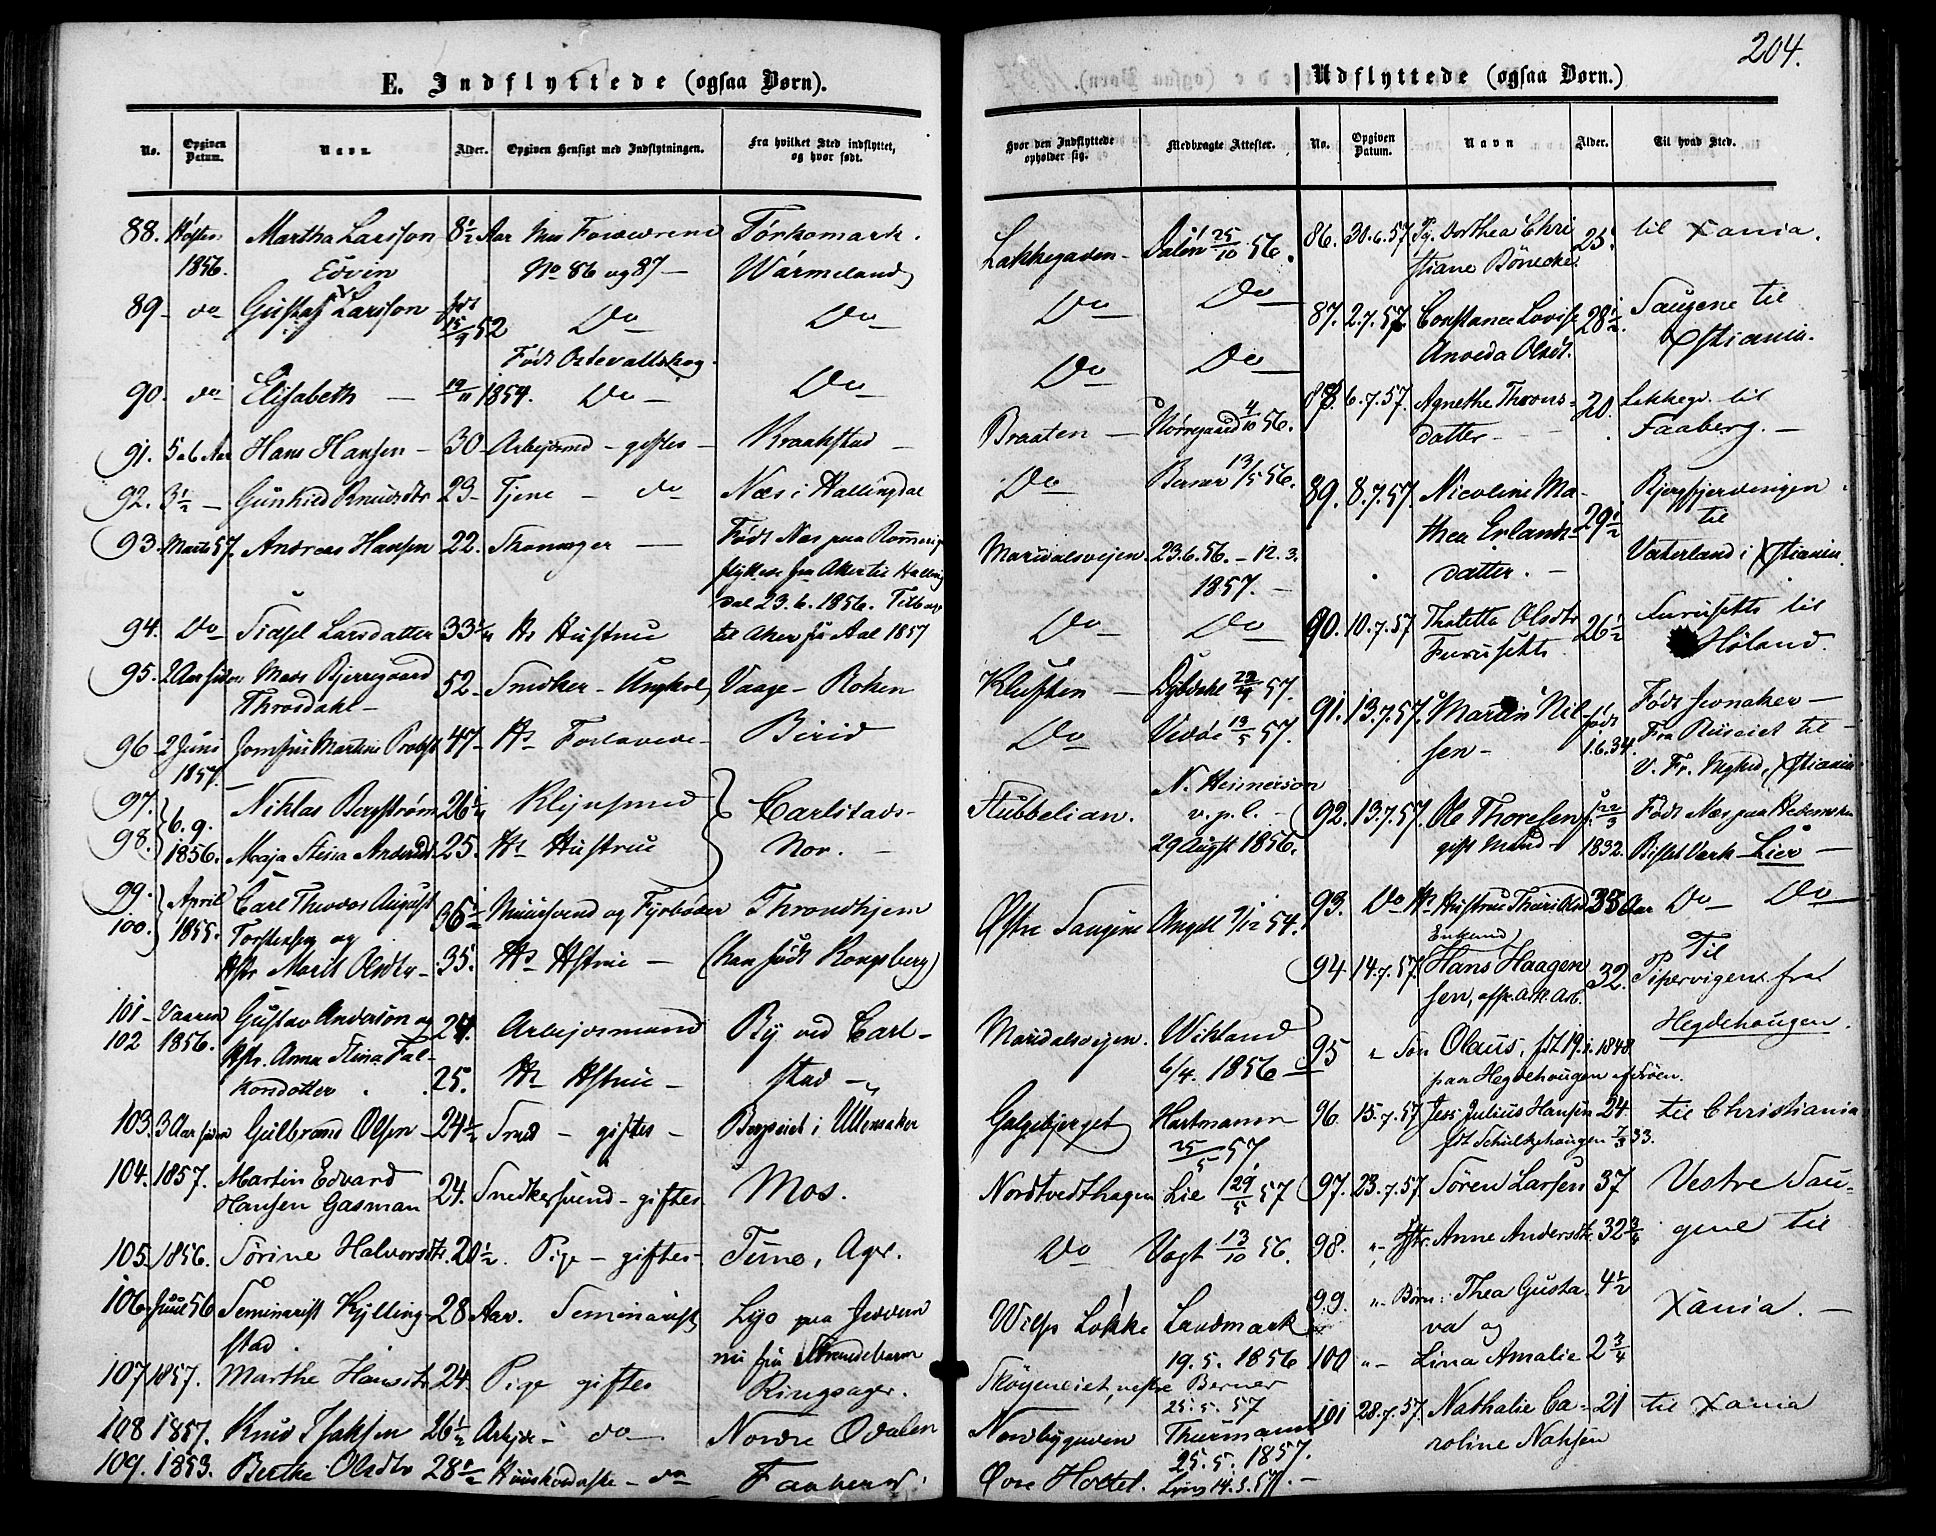 204.
E. Indflyttede (ogsaa Børn).
No.
Opgiven Datum.
Navn
Alder.
Opgiven Hensigt med Indflytningen.
Fra hvilket Sted indflyttet, og hvor født.
Hvor den Indflyttede opholder sig.
Medbragte Attester.
88. Høsten 1856. Martha Larsson 8½ Aar No 86 og 87 Wärmeland Lakkegaden Dalen 25/10 56.
89 do Gustaf Edvin Larsson født 15/9 52 Do Do Do Do
90. do Elisabeth 19/11 1854. Født Østevallskog Do Do Do Do
91. 5 a 6 Aar Hans Hansen 30 Arbejdsmd giftes Kraakstad Braaten Nørregaard 4/10 56.
92. 3½ Gunhild Knudsdtr 23 Tjene do Næs i Hallingdal Do Berner 13/5 56.
93. Marts 57. Andreas Hansen 22. Født Næs paa Romerige flyttede fra Aker til Halling
dal 23.6.1856. Tilbage Maridalsvejen. 23.6.56. - 12.3. 1857.
94. Do Sidsel Larsdatter 33 Hs Hustrue til Aker fra Aal 1857 Do Do
95. 2 Aar siden Mads Bjerregaard Throsdahl 52. Snedker - Ungkarl Vaage - Røken Klusten 22/4 57.
96 2 Juni 1857. Martine 47 Hs Forlovede Birid Do 13/5 57.
97. 98. 6.9. 1856. Niklas Bergström 26 Carlstads Stubbelian. N. Heinerson v.p.l.
Maja Stina Andersd 25. Hs Hustrue Nor. 29 Augst 1856.
99. 100. April 1855. Carl Theodor August 36½ Muursvend og Fyrbøder Throndhjem Østre Saugene 7/12 54.
og Hstr Marit Olsdtr 35. Hs Hstrue (han født Kongsberg)
101 102 Vaaren 1856. Gustav Anderson og 24. Arbejdsmand By ved Carl- Maridalsvejen. Wikland
Hstr. Anna Stina Fal- 25. Hs Hstrue stad 6/4. 1856
kondotter
103. 3 Aar siden Gulbrand Olsen 24½ Smed giftes Bergseiet i Ullensaker Galgebjerget Hartmann 25/5 57
104. 1857. Martin Edvard Hansen Gasman 24. Snedkersvend giftes Mos. Nordtvedthagen Lie 29/5 57
105. 1856. Sørine Halvorsdtr. 20½. Pige giftes Tune, Do Vogt 13/10 56.
106. Juni 56 Seminarist Kylling- stad 28 Aar. Seminarist paa Jedderen Wilses Løkke Landmark
nu fra Strandebarm 19.5.1856
107 1857. Marthe Hansdtr 24. Pige giftes Ringsager. Skøyeneiet, vestre Berner 25.5.57
108 1857. Knud Isaksen 26½ Arbejde do Nordre Odalen Nordbygaden Thurmann 25.5.1857.
109. 1853. Berthe Olsdtr 28½ do Faaberg Øvre Holtet. 14.5.57.
Udflyttede (ogsaa Børn.)
No.
Opgiven Datum.
Navn
Alder.
Til hvad Sted.
86. 30.6.57. Pg. Dorthea Chri stiane Bönecke. 25. til Xania.
87. 2.7.57. Constance Lovise Anveda Olsdt. 28½. Saugene til Xstiania.
88. 6.7.57. Agnethe Throns- datter 20. Lakkegd. til Faaberg.
89. 8.7.57. Nicoline Ma- thea Erlands- datter. 29½ Bjergfjerdingen til Vaterland i Xstiania
90. 10.7.57 Thaletta Olsdtr Furuseth 26½ Furuseth til Høland.
91. 13.7.57. Martin Nil- sen født 1.6.34. Født Jevnaker
Fra Riiseiet til
Xstiania
92. 13.7.57. Ole Thoresen gift Mand f. 22/3 1832. Født Næs paa Hedemarken
Lier
93. Do Hs Hustrue Thuri 33 Aar Do Do
94. 14.7.57. Enkemd Hans Haagen sen, 32. Til
Pipervigen fra
Hegdehaugen.
95 " Søn Olaus, fdt 19. 1848
paa Hegdehaugen
96. 15.7.57 Jess Julius Hansen 24. til Christiania
fdt Schultzehaugen 7/3 33.
97. 23.7.57. Søren Larsen 37 Vestre Sau-
98. " Hstr. Anne Andersdtr. 32¾ gene til
99. " Børn: Thea Gusta- va og 4½ Xania.
100 " Lina Amalie 2¾
101 28.7.57. Nathalie Ca- roline 21 til Xania